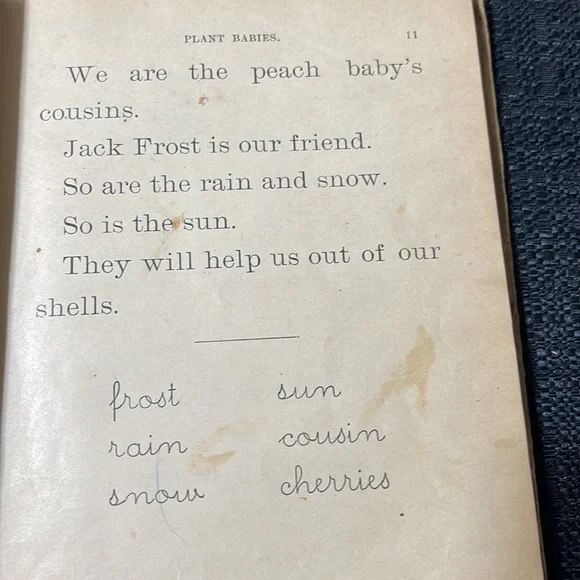 PLANT BABIES. 11
We are the peach baby's
cousins.
Jack Frost is our friend.
So are the rain and snow.
So is the sun.
They will help us out of our
shells.
frost sun
rain cousin
snow cherries